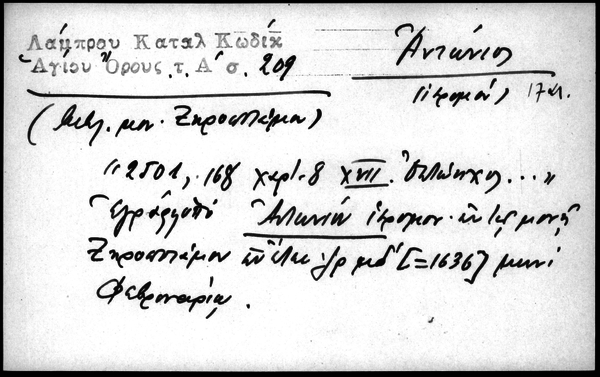 Λάμπρου Καταλ Κωδίκ
Ἁγίου Ὄρους τ. Α΄ σ. 209
Ἀντώνιος
(ἱερομόν) 17 αἰ.
(Βιβλ. μον. Ξηροποτάμου)
"2501, .168 χαρτ. 8 XVII. Ὀκτώηχος... "
Ἐγράφη ὑπὸ Ἀντωνίου ἱερομον. ἐν τῇ μονῇ
Ξηροποτάμου ἐν ἔτει ͵ζρμδ΄ [=1636] μηνὶ
Φεβρουαρίῳ.